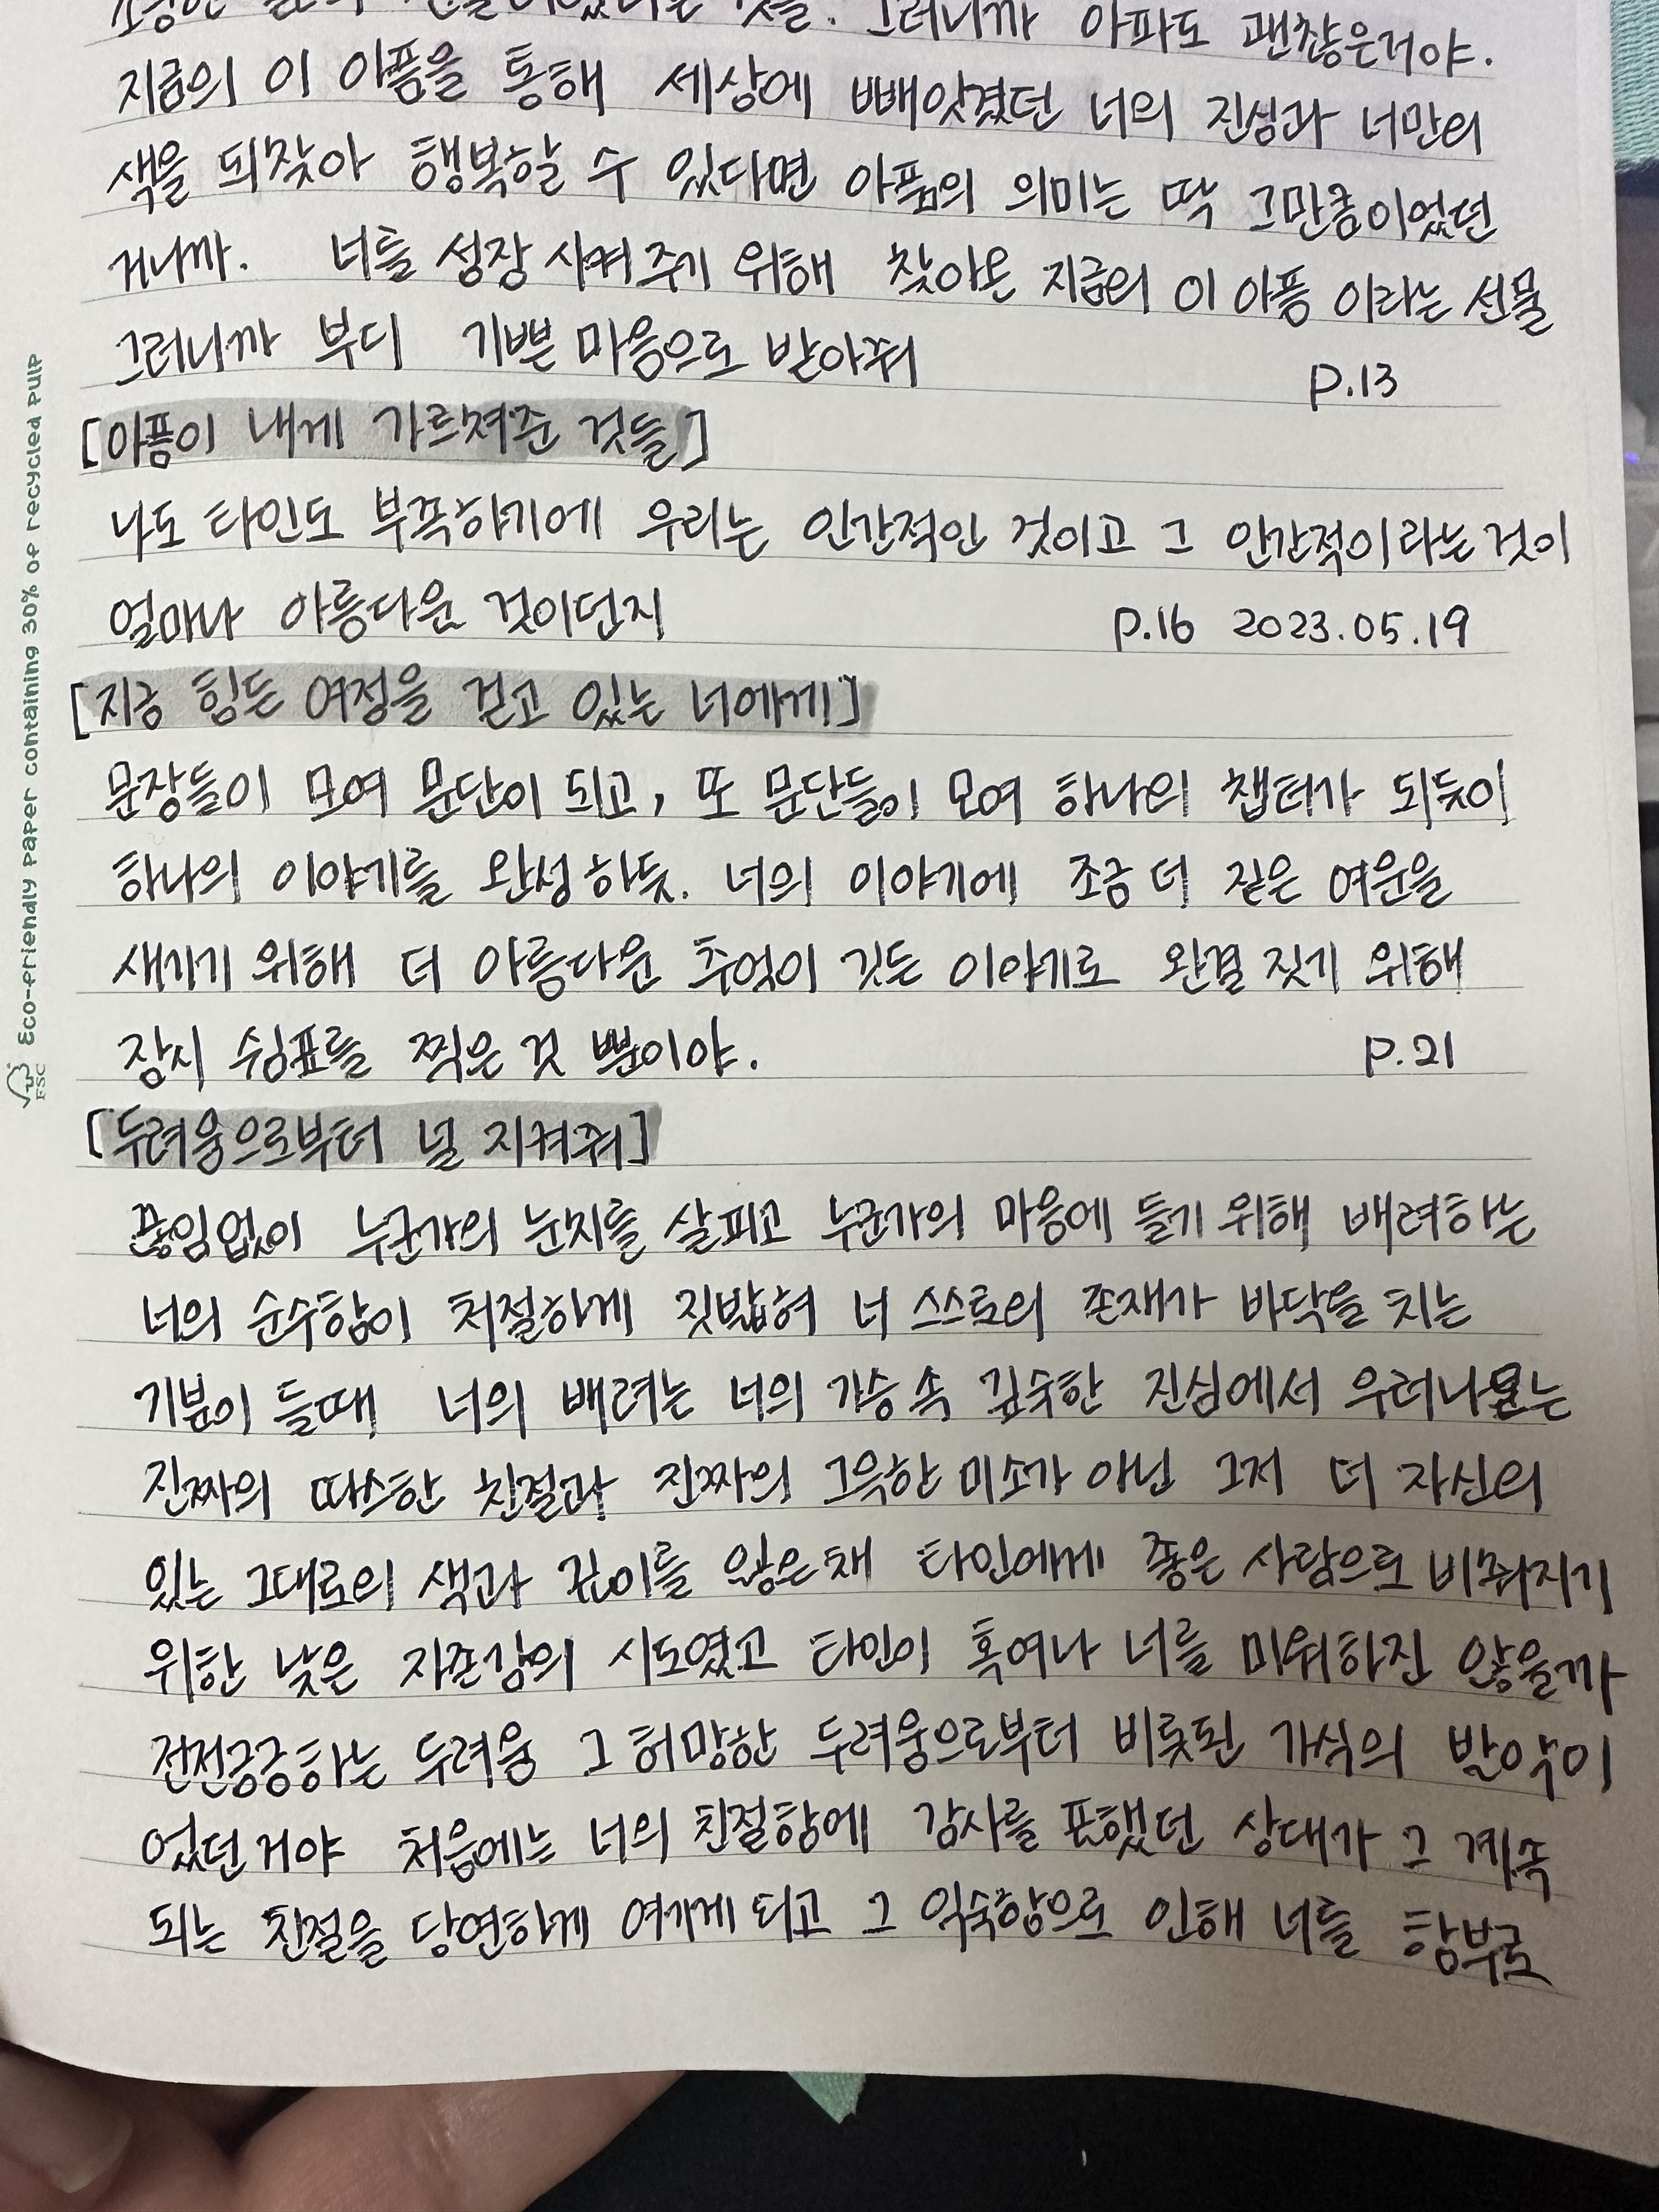 것을. 그러니까 아파도 괜찮은거야.
지금의 이 아픔을 통해 세상에 빼앗겼던 너의 진심과 너만의
색을 되찾아 행복할 수 있다면 아픔의 의미는 딱 그만큼이었던
거니까. 너를 성장 시켜 주기 위해 찾아온 지금의 이 아픔 이라는 선물
그러니까 부디 기쁜 마음으로 받아줘 P.13
[아픔이 내게 가르쳐준 것들]
나도 타인도 부족하기에 우리는 인간적인 것이고 그 인간적이라는 것이
얼마나 아름다운 것이던지 P.16 2023.05.19
[지금 힘든 여정을 걷고 있는 너에게]
문장들이 모여 문단이 되고, 또 문단들이 모여 하나의 챕터가 되듯이
하나의 이야기를 완성하듯. 너의 이야기에 조금 더 짙은 여운을
새기기 위해 더 아름다운 추억이 깃든 이야기로 완결 짓기 위해
잠시 쉼표를 찍은 것 뿐이야. P.21
[두려움으로부터 널 지켜줘]
끊임없이 누군가의 눈치를 살피고 누군가의 마음에 들기 위해 배려하는
너의 순수함이 처절하게 짓밟혀 너 스스로의 존재가 바닥을 치는
기분이 들때 너의 배려는 너의 가슴 속 깊숙한 진심에서 우러나오는
진짜의 따스한 친절과 진짜의 그윽한 미소가 아닌 그저 더 자신의
있는 그대로의 색과 깊이를 잃은채 타인에게 좋은 사람으로 비춰지기
위한 낮은 자존감의 시도였고 타인이 혹여나 너를 미워하진 않을까
전전긍긍하는 두려움 그 허망한 두려움으로부터 비롯된 가식의 발악이
었던거야 처음에는 너의 친절함에 감사를 표했던 상대가 그 계속
되는 친절을 당연하게 여기게 되고 그 익숙함으로 인해 너를 함부로
Eco-friendly paper containing 30% of recycled pulp
FSC